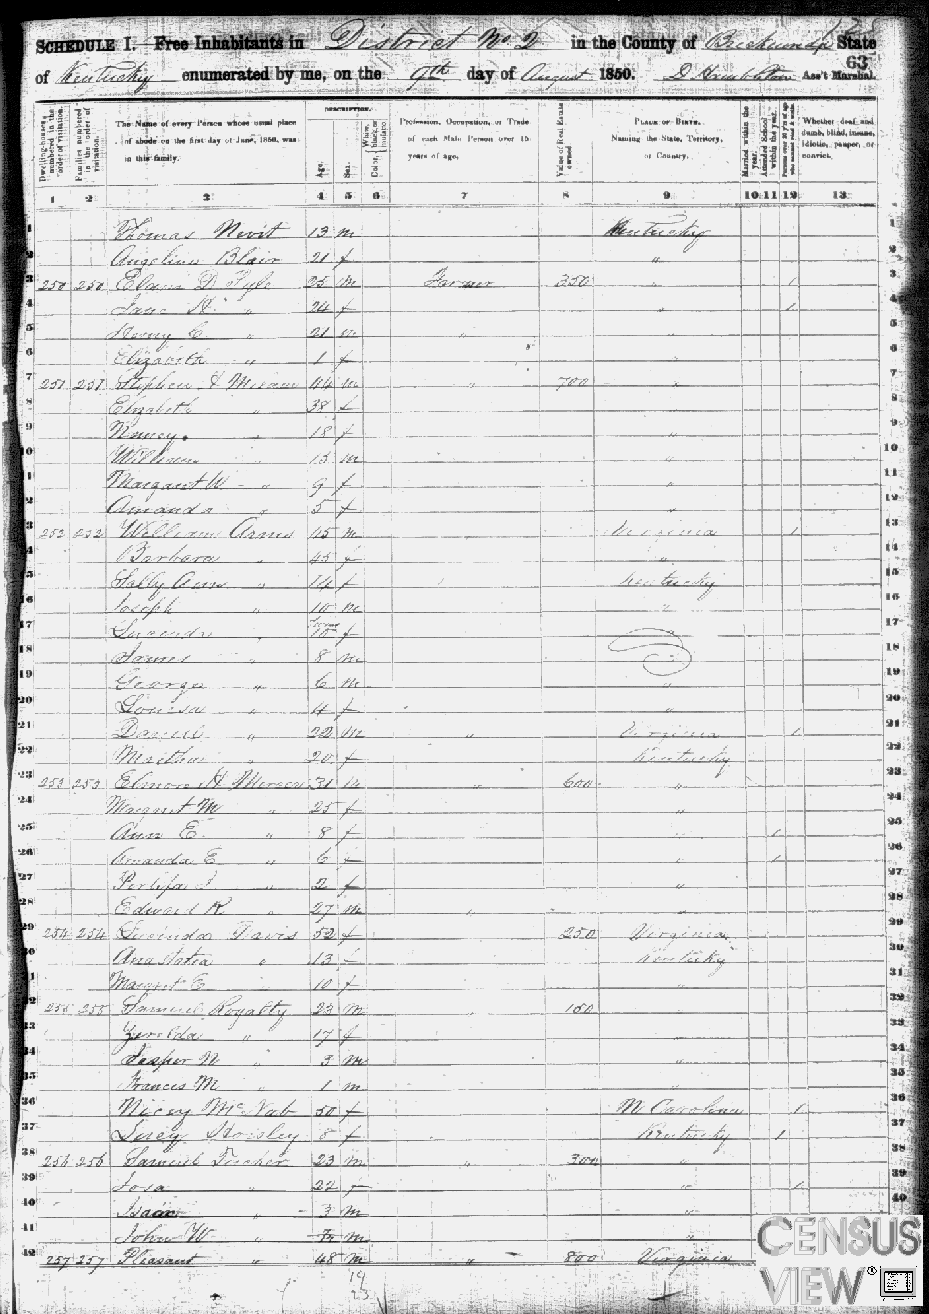 SCHEDULE I.—Free Inhabitants in District No 2 in the County of Breckenridge State
of Kentucky enumerated by me, on the 9th day of August 1850. Ass't Marshal.
63
Dwelling-houses numbered in the order of visitation.
Families numbered in the order of visitation.
The Name of every Person whose usual place of abode on the first day of June, 1850, was in this family.
DESCRIPTION.
Age.
Sex.
Color, White, black, or mulatto.
Profession, Occupation, or Trade of each Male Person over 15 years of age.
Value of Real Estate owned
PLACE OF BIRTH. Naming the State, Territory, or Country.
Married within the year.
Attended School within the year.
Persons over 20 y'rs of age who cannot read & write.
Whether deaf and dumb, blind, insane, idiotic, pauper, or convict.
1 2 3 4 5 6 7 8 9 10 11 12 13
1 Thomas Nevit 13 m Kentucky 1
2 Angeline Blair 21 f " 2
3 250 250 D Pyle 25 m Farmer 350 " 1 3
4 Jane " 24 f " 1 4
5 Henry C. " 21 m " " 5
6 Elizabeth " 1 f " 6
7 251 251 Stephen H 44 m " 700 " 7
8 Elizabeth " 38 f " 8
9 Nancy " 18 f " 9
10 William " 13 m " 10
11 Margaret W " 9 f " 11
12 Amanda " 5 f " 12
13 252 252 William Arms 45 m Virginia 1 13
14 Barbara " 45 f " 14
15 Sally Ann " 14 f Kentucky 15
16 Joseph " 10 m " 16
17 " 10 f " 17
18 James " 8 m " 18
19 George " 6 m " 19
20 Louisa " 4 f " 20
21 Daniel " 22 m " Virginia 1 21
22 Martha " 20 f Kentucky 22
23 253 253 H 31 m " 600 " 23
24 Margaret M " 25 f " 24
25 Ann E. " 8 f " 1 25
26 Amanda E " 6 f " 1 26
27 " 2 f " 27
28 Edward R " 27 m " " 28
29 254 254 Lucinda Davis 52 f 250 Virginia 29
30 Anastatia " 13 f Kentucky 30
31 Margaret E " 10 f " 31
32 255 255 Samuel Royalty 23 m " 150 " 32
33 Zerelda " 17 f " 33
34 Jasper N " 3 m " 34
35 Francis M " 1 m " 35
36 Nicey McNab 50 f N Carolina 1 36
37 Lucy Horsley 8 f Kentucky 1 37
38 256 256 Samuel Tucker 23 m " 300 " 38
39 " 22 f " 1 39
40 Isaac " 3 m " 40
41 John W " m "
42 257 257 Pleasant " 48 m " 800 Virginia
14
23
CENSUS
VIEW®